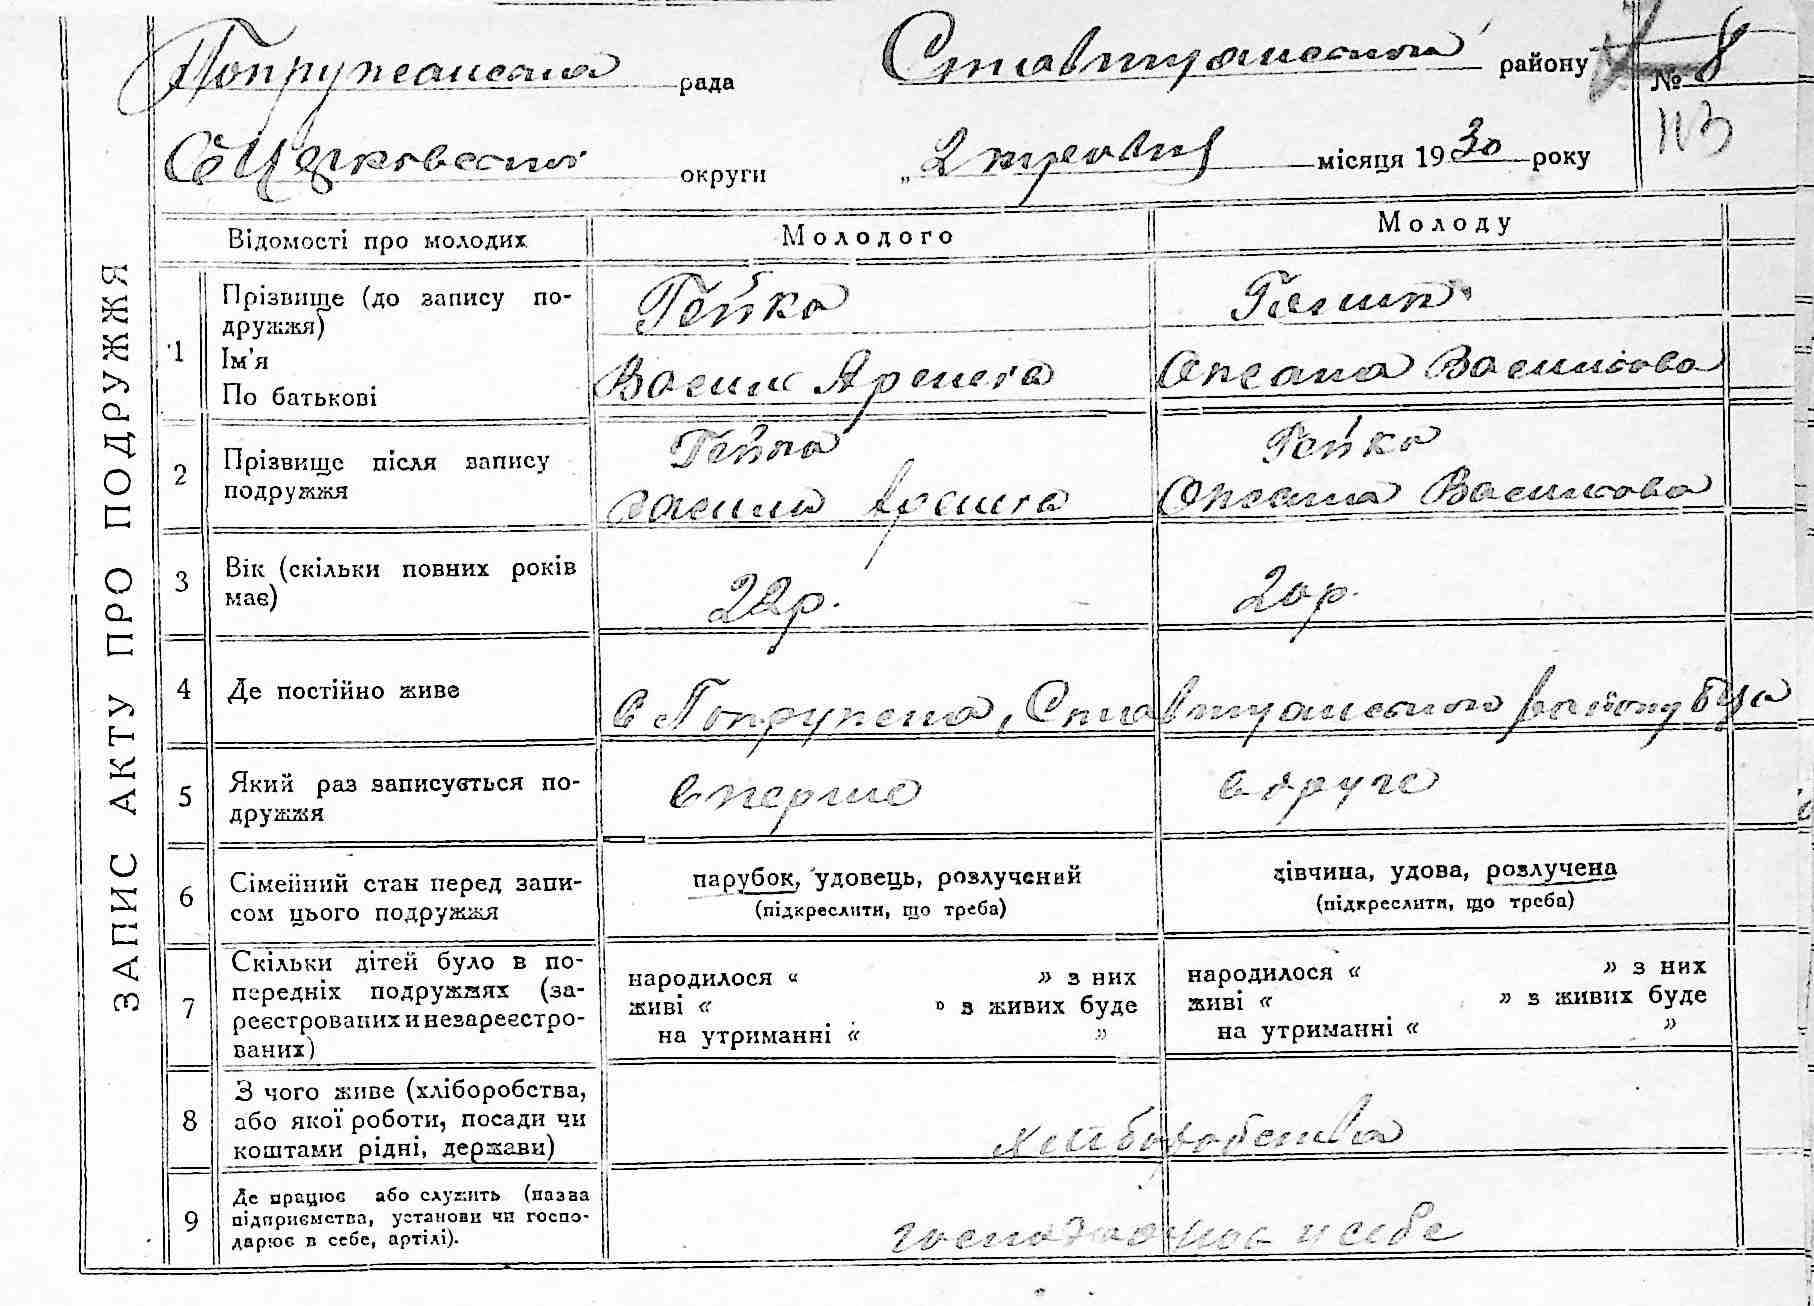 Попружанська рада Ставищанського району № 8
Б Церківської округи „2 травня місяця 1930 року
113
ЗАПИС АКТУ ПРО ПОДРУЖЖЯ
Відомості про молодих Молодого Молоду
1 Прізвище (до запису по-
дружжя)
Ім'я
По батькові
Гейко
Василь
Оксана Василіова
2 Прізвище після запису
подружжя
Гейко
Василь
Гейко
Оксана Василіова
3 Вік (скільки повних років
має)
22р.
20р.
4 Де постійно живе
в Попружена, Ставищанського району
5 Який раз записується по-
дружжя
вперше
вдруге
6 Сімейний стан перед запи-
сом цього подружжя
парубок, удовець, розлучений
(підкреслити, що треба)
дівчина, удова, розлучена
(підкреслити, що треба)
7 Скільки дітей було в по-
передніх подружжях (за-
реєстрованих и незареєстро-
ваних)
народилося “ ” з них
живі “ ” з живих буде
на утриманні “ ”
народилося “ ” з них
живі “ ” з живих буде
на утриманні “ ”
8 З чого живе (хліборобства,
або якої роботи, посади чи
коштами рідні, держави)
хліборобства
9 Де працює або служить (назва
підприємства, установи чи госпо-
дарює в себе, артілі).
господарює у себе